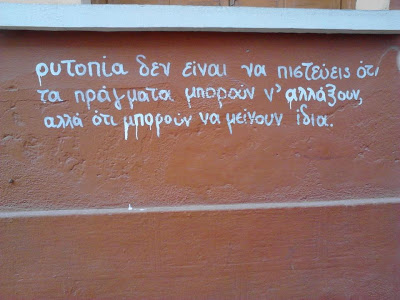 ρυτοπία δεν είναι να πιστεύεις ότι
τα πράγματα μπορούν ν' αλλάξουν,
αλλά ότι μπορούν να μείνουν ίδια.